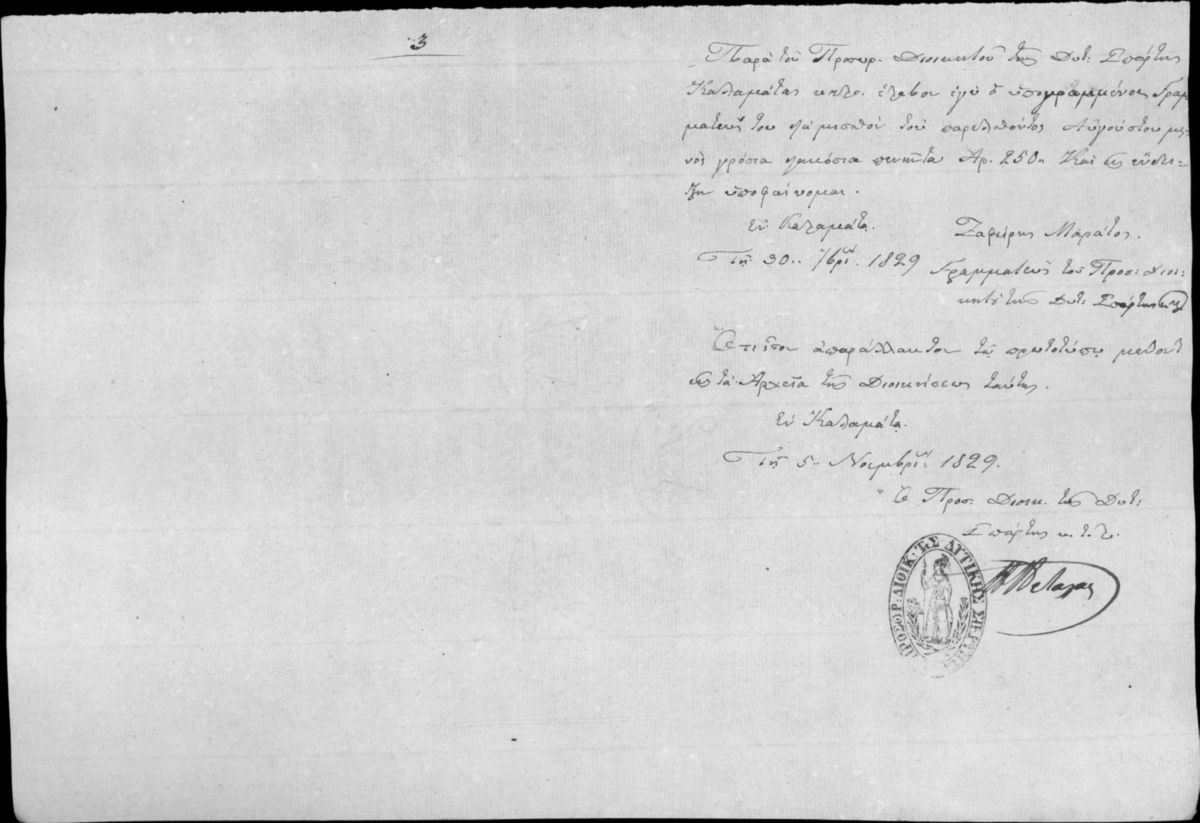 3
Παρὰ τοῦ Προσωρ. Διοικητοῦ τῆς Δυτ: Σπάρτης
Καλαμάτας κτλ. ἔλαβον ἐγὼ ὁ ὑπογραμμένος Γραμ
ματεὺς του μισθόν τοῦ παρελθόντος Αὐγούστου μη-
νὸς γρόσια διακόσια πενῆντα Αρ. 250. Καὶ εἰς ἔνδει-
ξιν ὑποφαίνομαι.
Ἐν Καλαμάτᾳ.
Τῇ 30. 7βρίου 1829
Ζαφείρης Μαράτος.
Γραμματεὺς τοῦ Προσ: Διοι-
κητ: τῆς Δυτ: Σπάρτης κτλ
Ὅτι ἴσον ἀπαράλλακτον τῷ πρωτοτύπῳ μένοντ
εἰς τὰ Ἀρχεῖα τῆς Διοικήσεως ταύτης.
Ἐν Καλαμάτᾳ.
Τῇ 5. Νοεμβρίου 1829.
Ὁ Προσ. Διοικ. τῆς Δυτ:
Σπάρτης κ.τ.λ.
ΠΡΟΣΟΡ: ΔΙΟΙΚ: ΤΗΣ ΔΥΤΙΚΗΣ ΣΠΑΡΤΗΣ